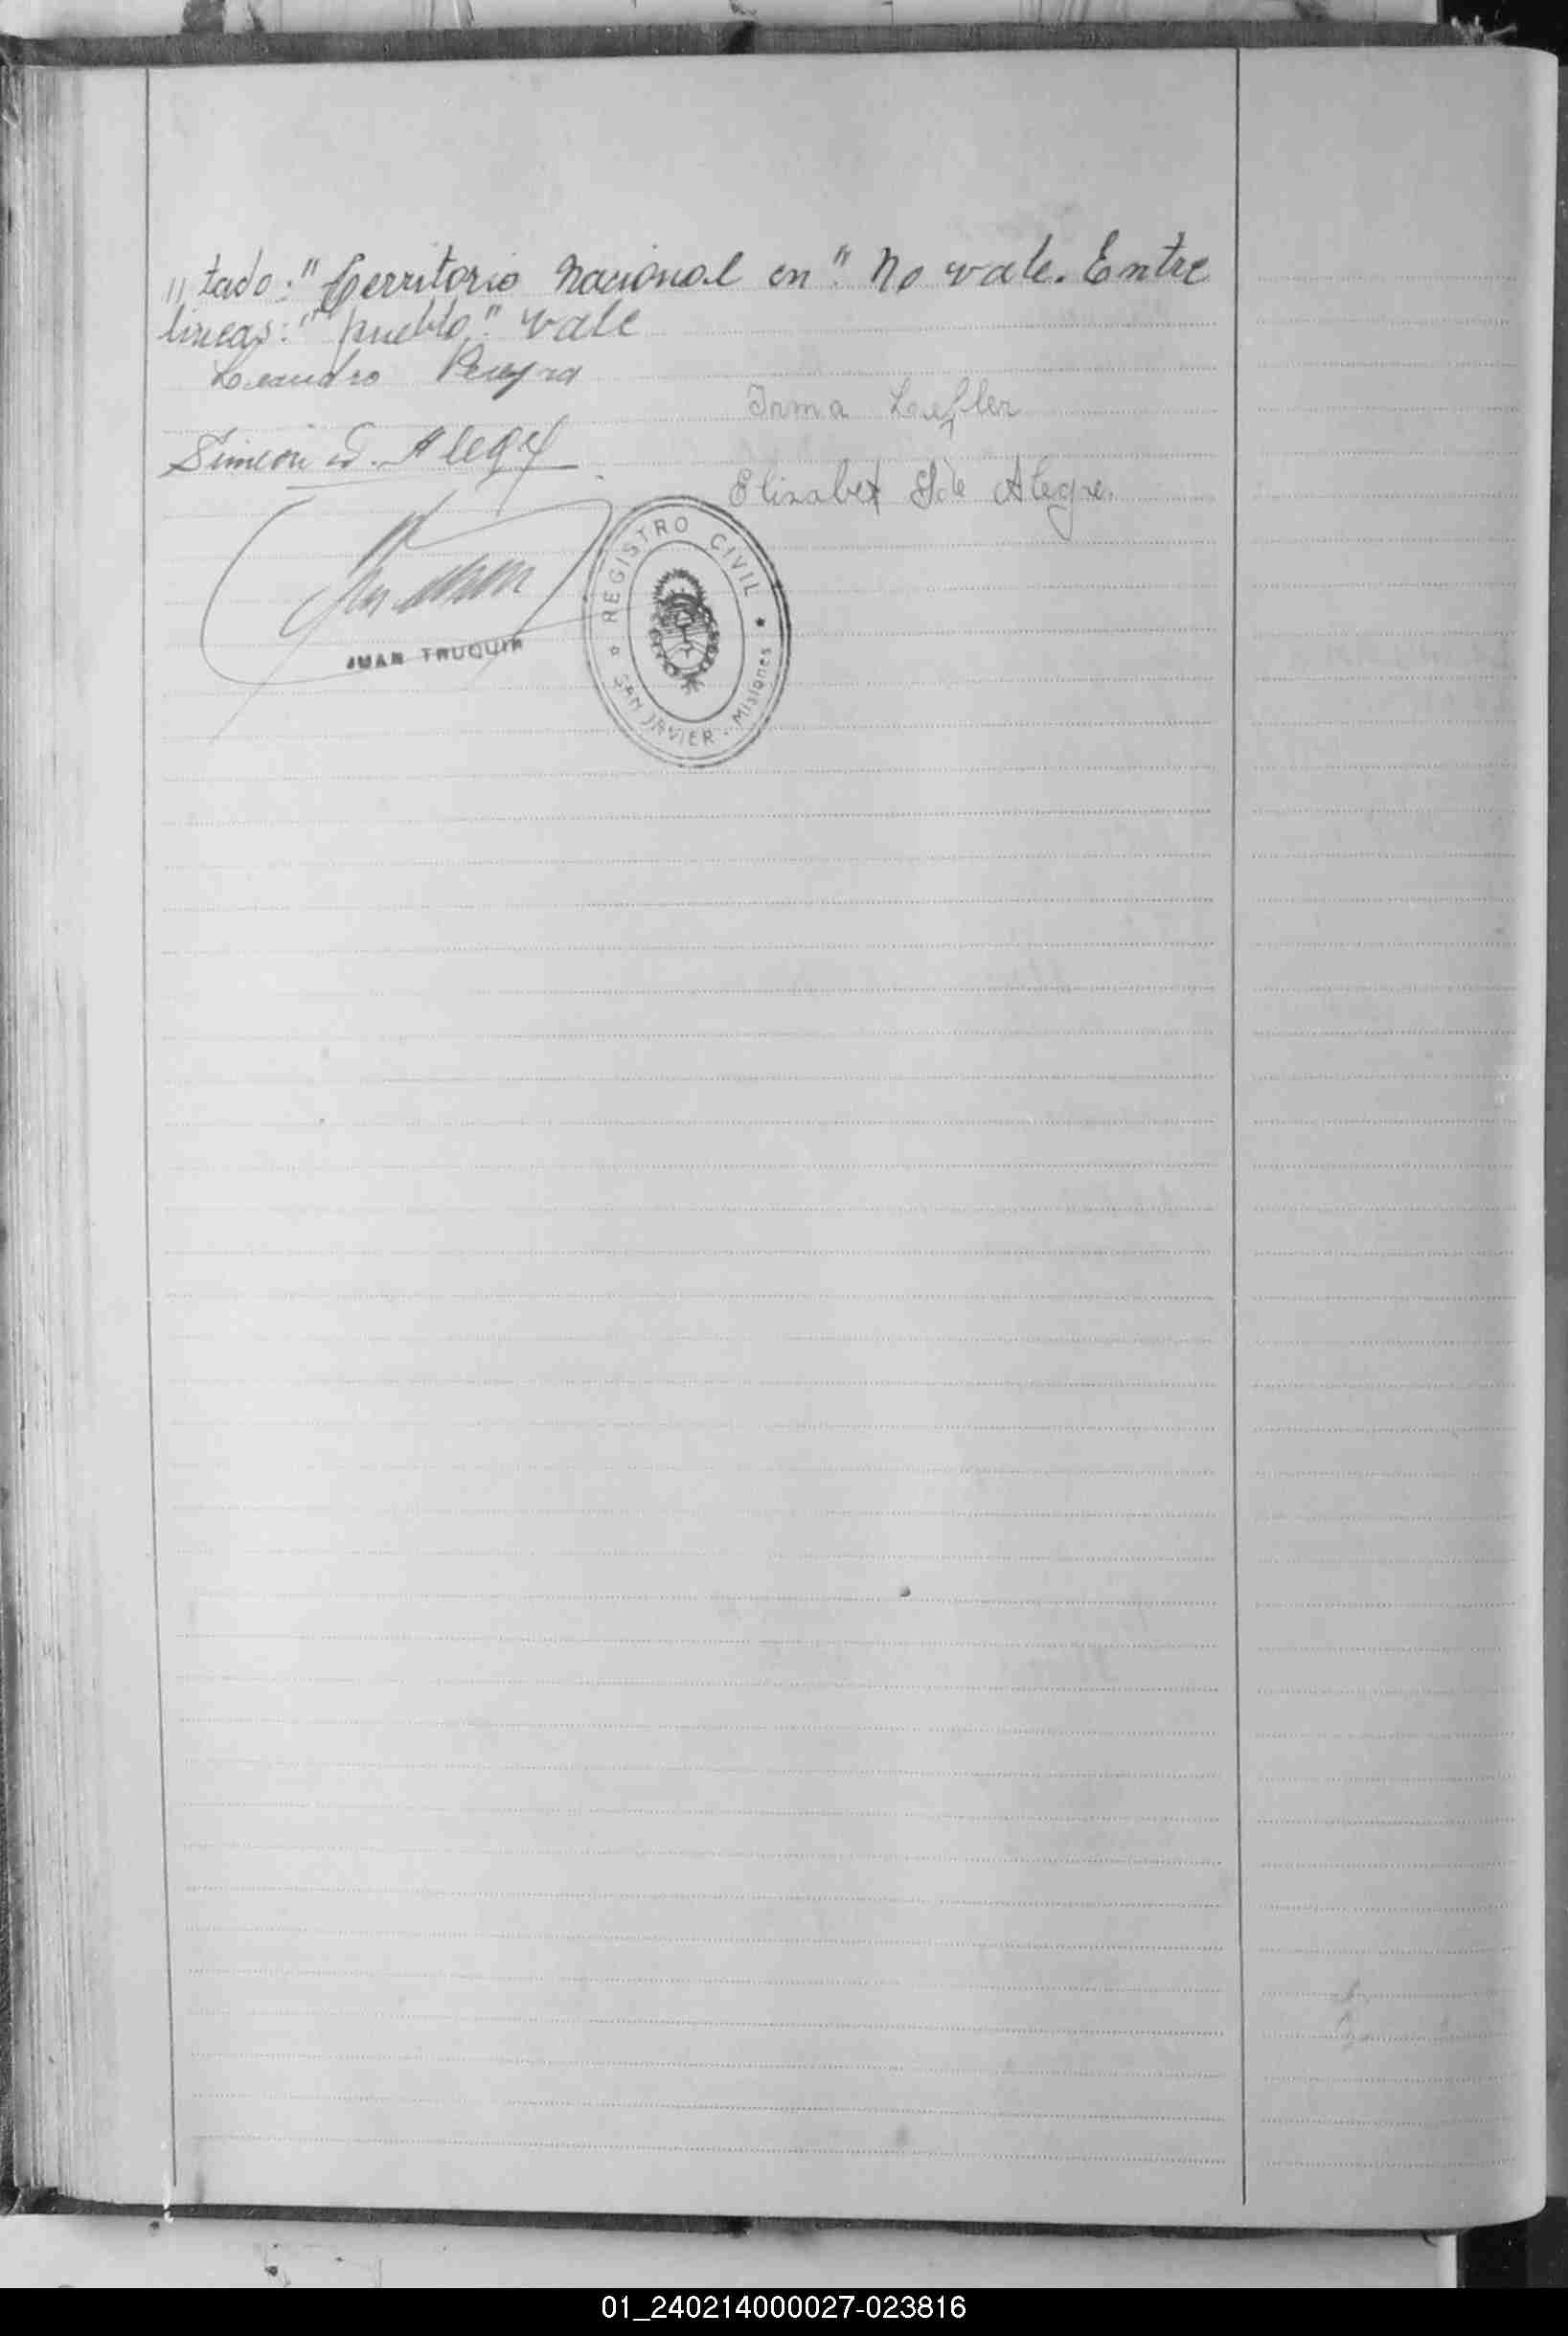 " tado: "Territorio Nacional en". No vale. Entre
lineas: "pueblo." vale
Leandro Pereyra
Irma Loefler
Simeon Alegre
Elizabet de Alegre.
JUAN TRUQUIN
REGISTRO CIVIL
SAN JAVIER - Misiones
01_240214000027-023816